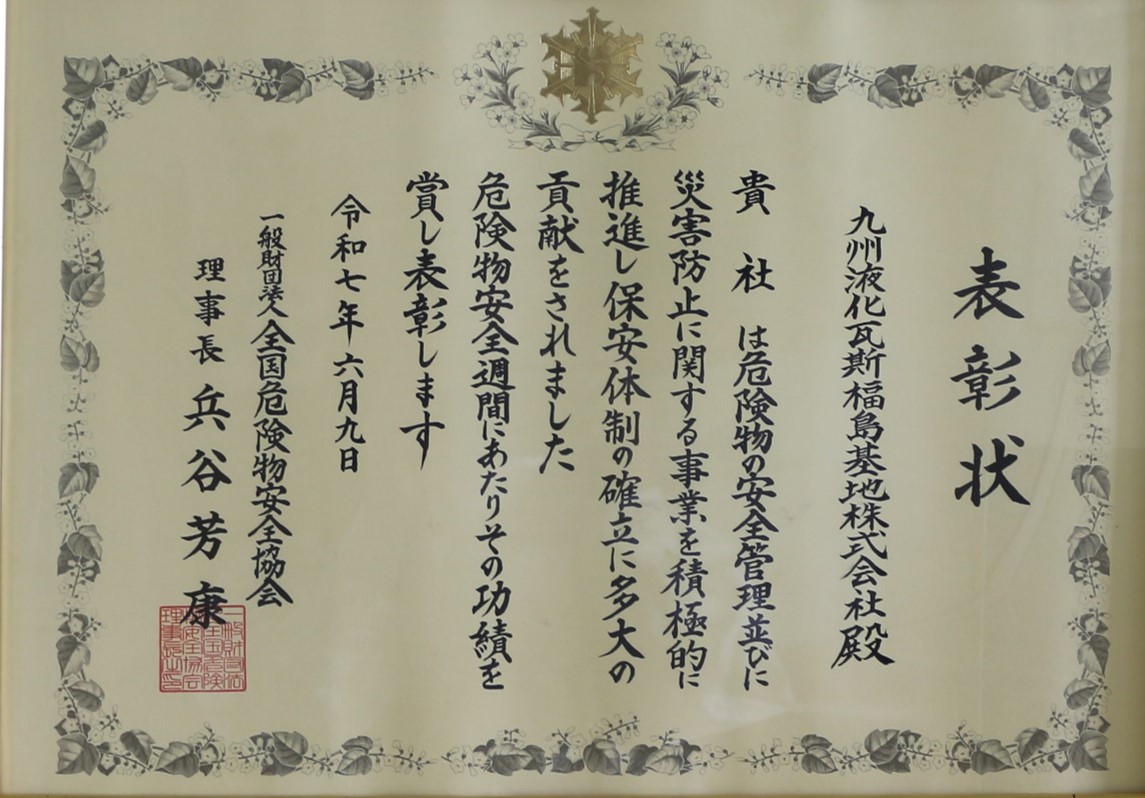 表彰状
九州液化瓦斯福島基地株式会社殿
貴社は危険物の安全管理並びに
災害防止に関する事業を積極的に
推進し保安体制の確立に多大の
貢献をされました
危険物安全週間にあたりその功績を
賞し表彰します
令和七年六月九日
一般財団法人全国危険物安全協会
理事長兵谷芳康
一般財団法
人全国危険
物安全協会
理事長之印